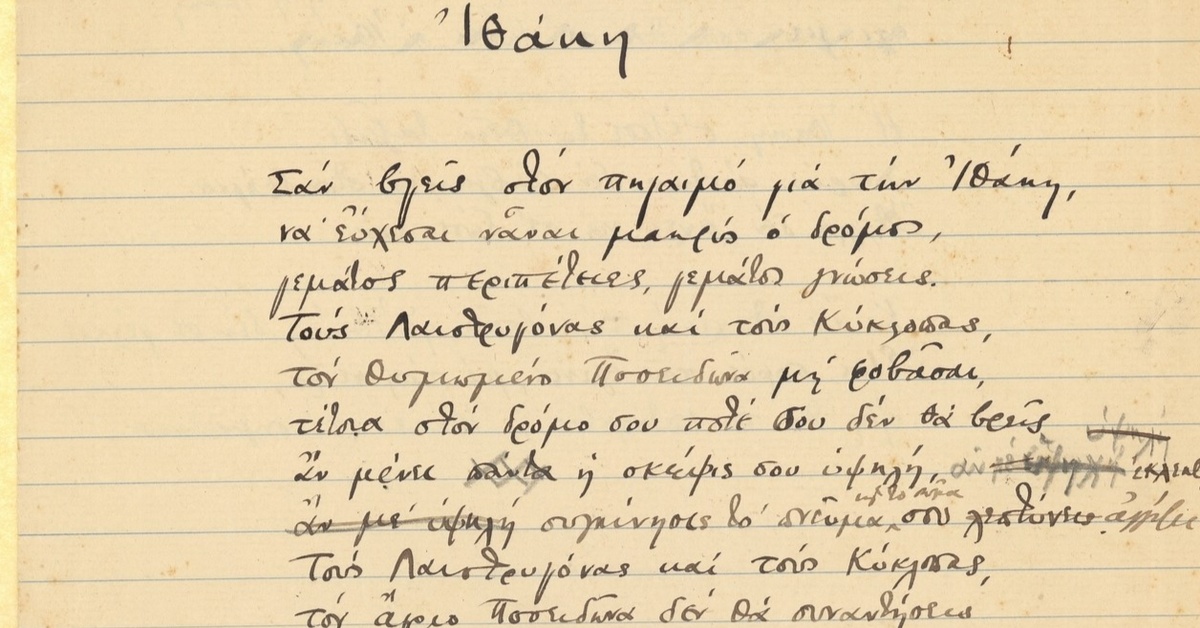 Ἰθάκη
Σάν βγεῖς στόν πηγαιμό γιά τήν Ἰθάκη,
νά εὔχεσαι νἆναι μακρύς ὁ δρόμος,
γεμάτος περιπέτειες, γεμάτος γνώσεις.
Τούς Λαιστρυγόνας καί τούς Κύκλωπας,
τόν θυμωμένο Ποσειδῶνα μή φοβᾶσαι,
τέτοια στόν δρόμο σου ποτέ σου δέν θά βρεῖς
ἄν μένει πάντα ἡ σκέψις σου ὑψηλή, ἐκλεκτ
ἄν μέ ὑψηλή συγκίνησις τό πνεῦμα καί τό σῶμα σου λεπτύνει ἀγγίζει
Τούς Λαιστρυγόνας καί τούς Κύκλωπας,
τόν ἄγριο Ποσειδῶνα δέν θά συναντήσεις